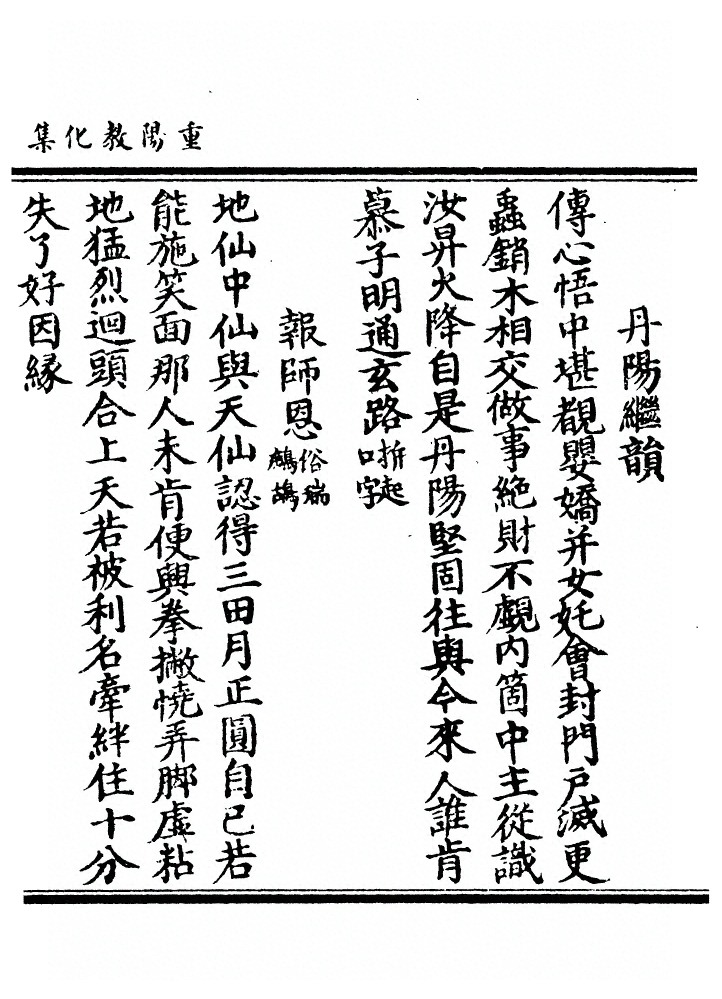 重陽教化集
丹陽繼韻
傳心悟中堪覩嬰嬌并女妊會封門戶滅更
蟲銷木相交做事絶財不覷內箇中主從識
汝昇火降自是丹陽堅固往與今來人誰肯
慕子明通玄路 折起口字
報師恩 俗瑞鷓鴣
地仙中仙與天仙認得三田月正圓自已若
能施笑面那人未肯便興拳撇憢弄脚虛粘
地猛烈迴頭合上天若被利名牽絆住十分
失了好因緣